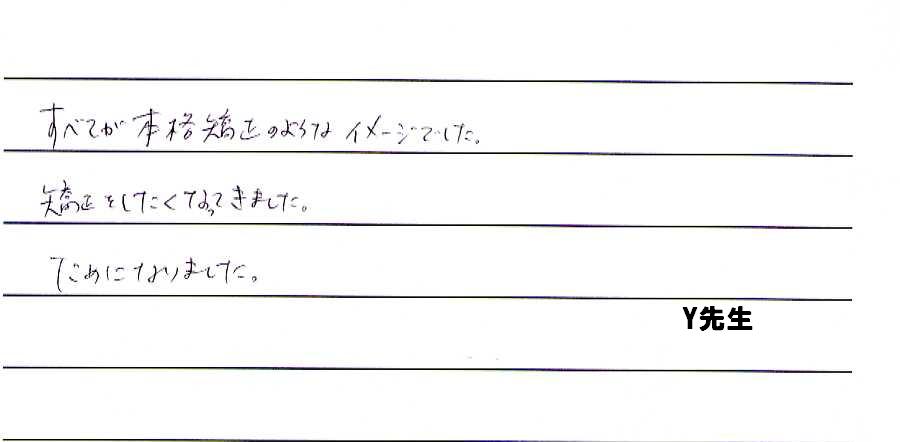 すべてが本格矯正のようなイメージでした。
矯正をしたくなってきました。
ためになりました。
Y先生